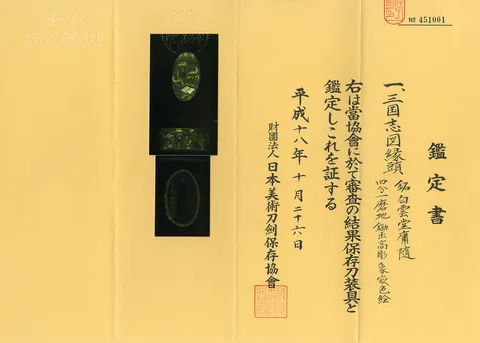 № 451001
鑑定書
一、三国志図縁頭 銘 白雲堂庸隨
四分一磨地 鋤出高彫 象嵌色絵
右は當協會に於て審査の結果保存刀装具と
鑑定しこれを証する
平成十八年十月二十六日
財團法人日本美術刀劍保存協會